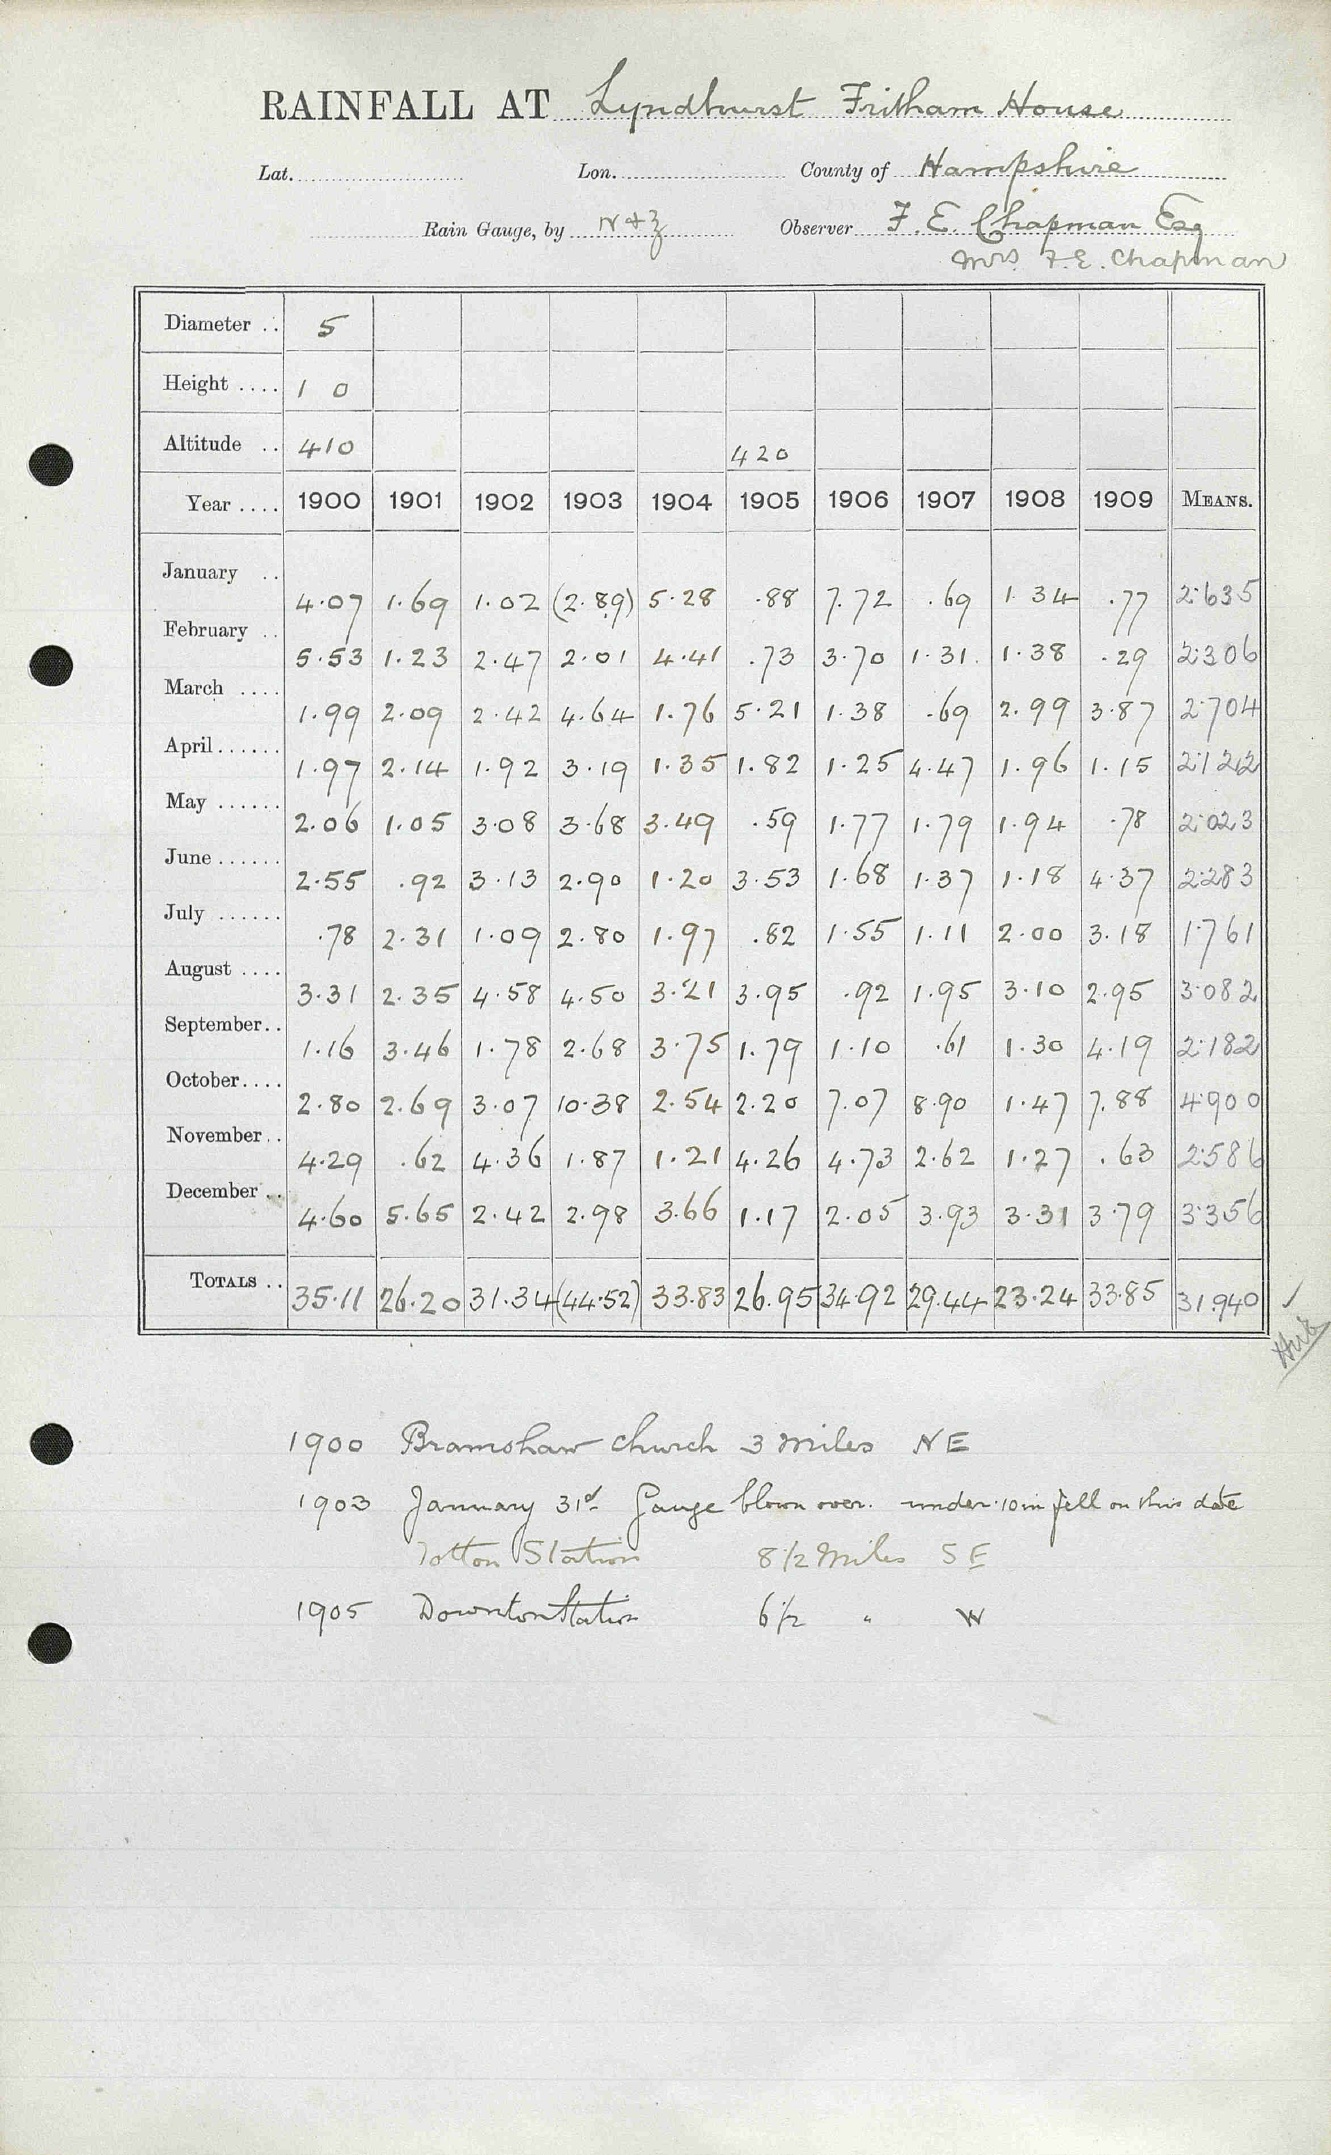 RAINFALL AT Lyndhurst Fritham House
Lat. Lon. County of Hampshire
Rain Gauge, by N & Z Observer F. E. Chapman Esq
Mrs. F. E. Chapman
Diameter .. 5
Height .... 1 0
Altitude .. 410 420
Year .... 1900 1901 1902 1903 1904 1905 1906 1907 1908 1909 MEANS.
January .. 4.07 1.69 1.02 (2.89) 5.28 .88 7.72 .69 1.34 .77 2.635
February .. 5.53 1.23 2.47 2.01 4.41 .73 3.70 1.31 1.38 .29 2.306
March .... 1.99 2.09 2.42 4.64 1.76 5.21 1.38 .69 2.99 3.87 2.704
April ...... 1.97 2.14 1.92 3.19 1.35 1.82 1.25 4.47 1.96 1.15 2.122
May ...... 2.06 1.05 3.08 3.68 3.49 .59 1.77 1.79 1.94 .78 2.023
June ...... 2.55 .92 3.13 2.90 1.20 3.53 1.68 1.37 1.18 4.37 2.283
July ...... .78 2.31 1.09 2.80 1.97 .82 1.55 1.11 2.00 3.18 1.761
August .... 3.31 2.35 4.58 4.50 3.21 3.95 .92 1.95 3.10 2.95 3.082
September .. 1.16 3.46 1.78 2.68 3.75 1.79 1.10 .61 1.30 4.19 2.182
October .... 2.80 2.69 3.07 10.38 2.54 2.20 7.07 8.90 1.47 7.88 4.900
November .. 4.29 .62 4.36 1.87 1.21 4.26 4.73 2.62 1.27 .63 2.586
December .. 4.60 5.65 2.42 2.98 3.66 1.17 2.05 3.93 3.31 3.79 3.356
TOTALS .. 35.11 26.20 31.34 (44.52) 33.83 26.95 34.92 29.44 23.24 33.85 31.940
1900 Bramshaw church 3 miles NE
1903 January 31st Gauge blown over. under .10 in fell on this date
Totton Station 8 1/2 Miles SE
1905 Downton Station 6 1/2 " W